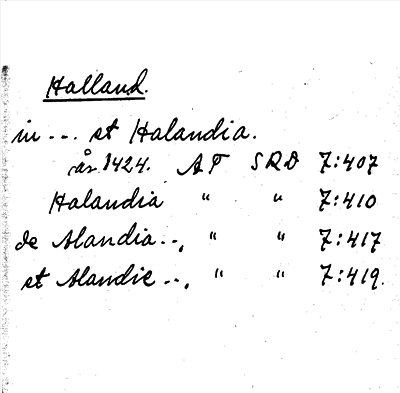 Halland.
in --- et Halandia.
år 1424. A F S R D 7:407
Halandia " " 7:410
de Alandia --, " " 7:417
et Alandie --, " " 7:419.